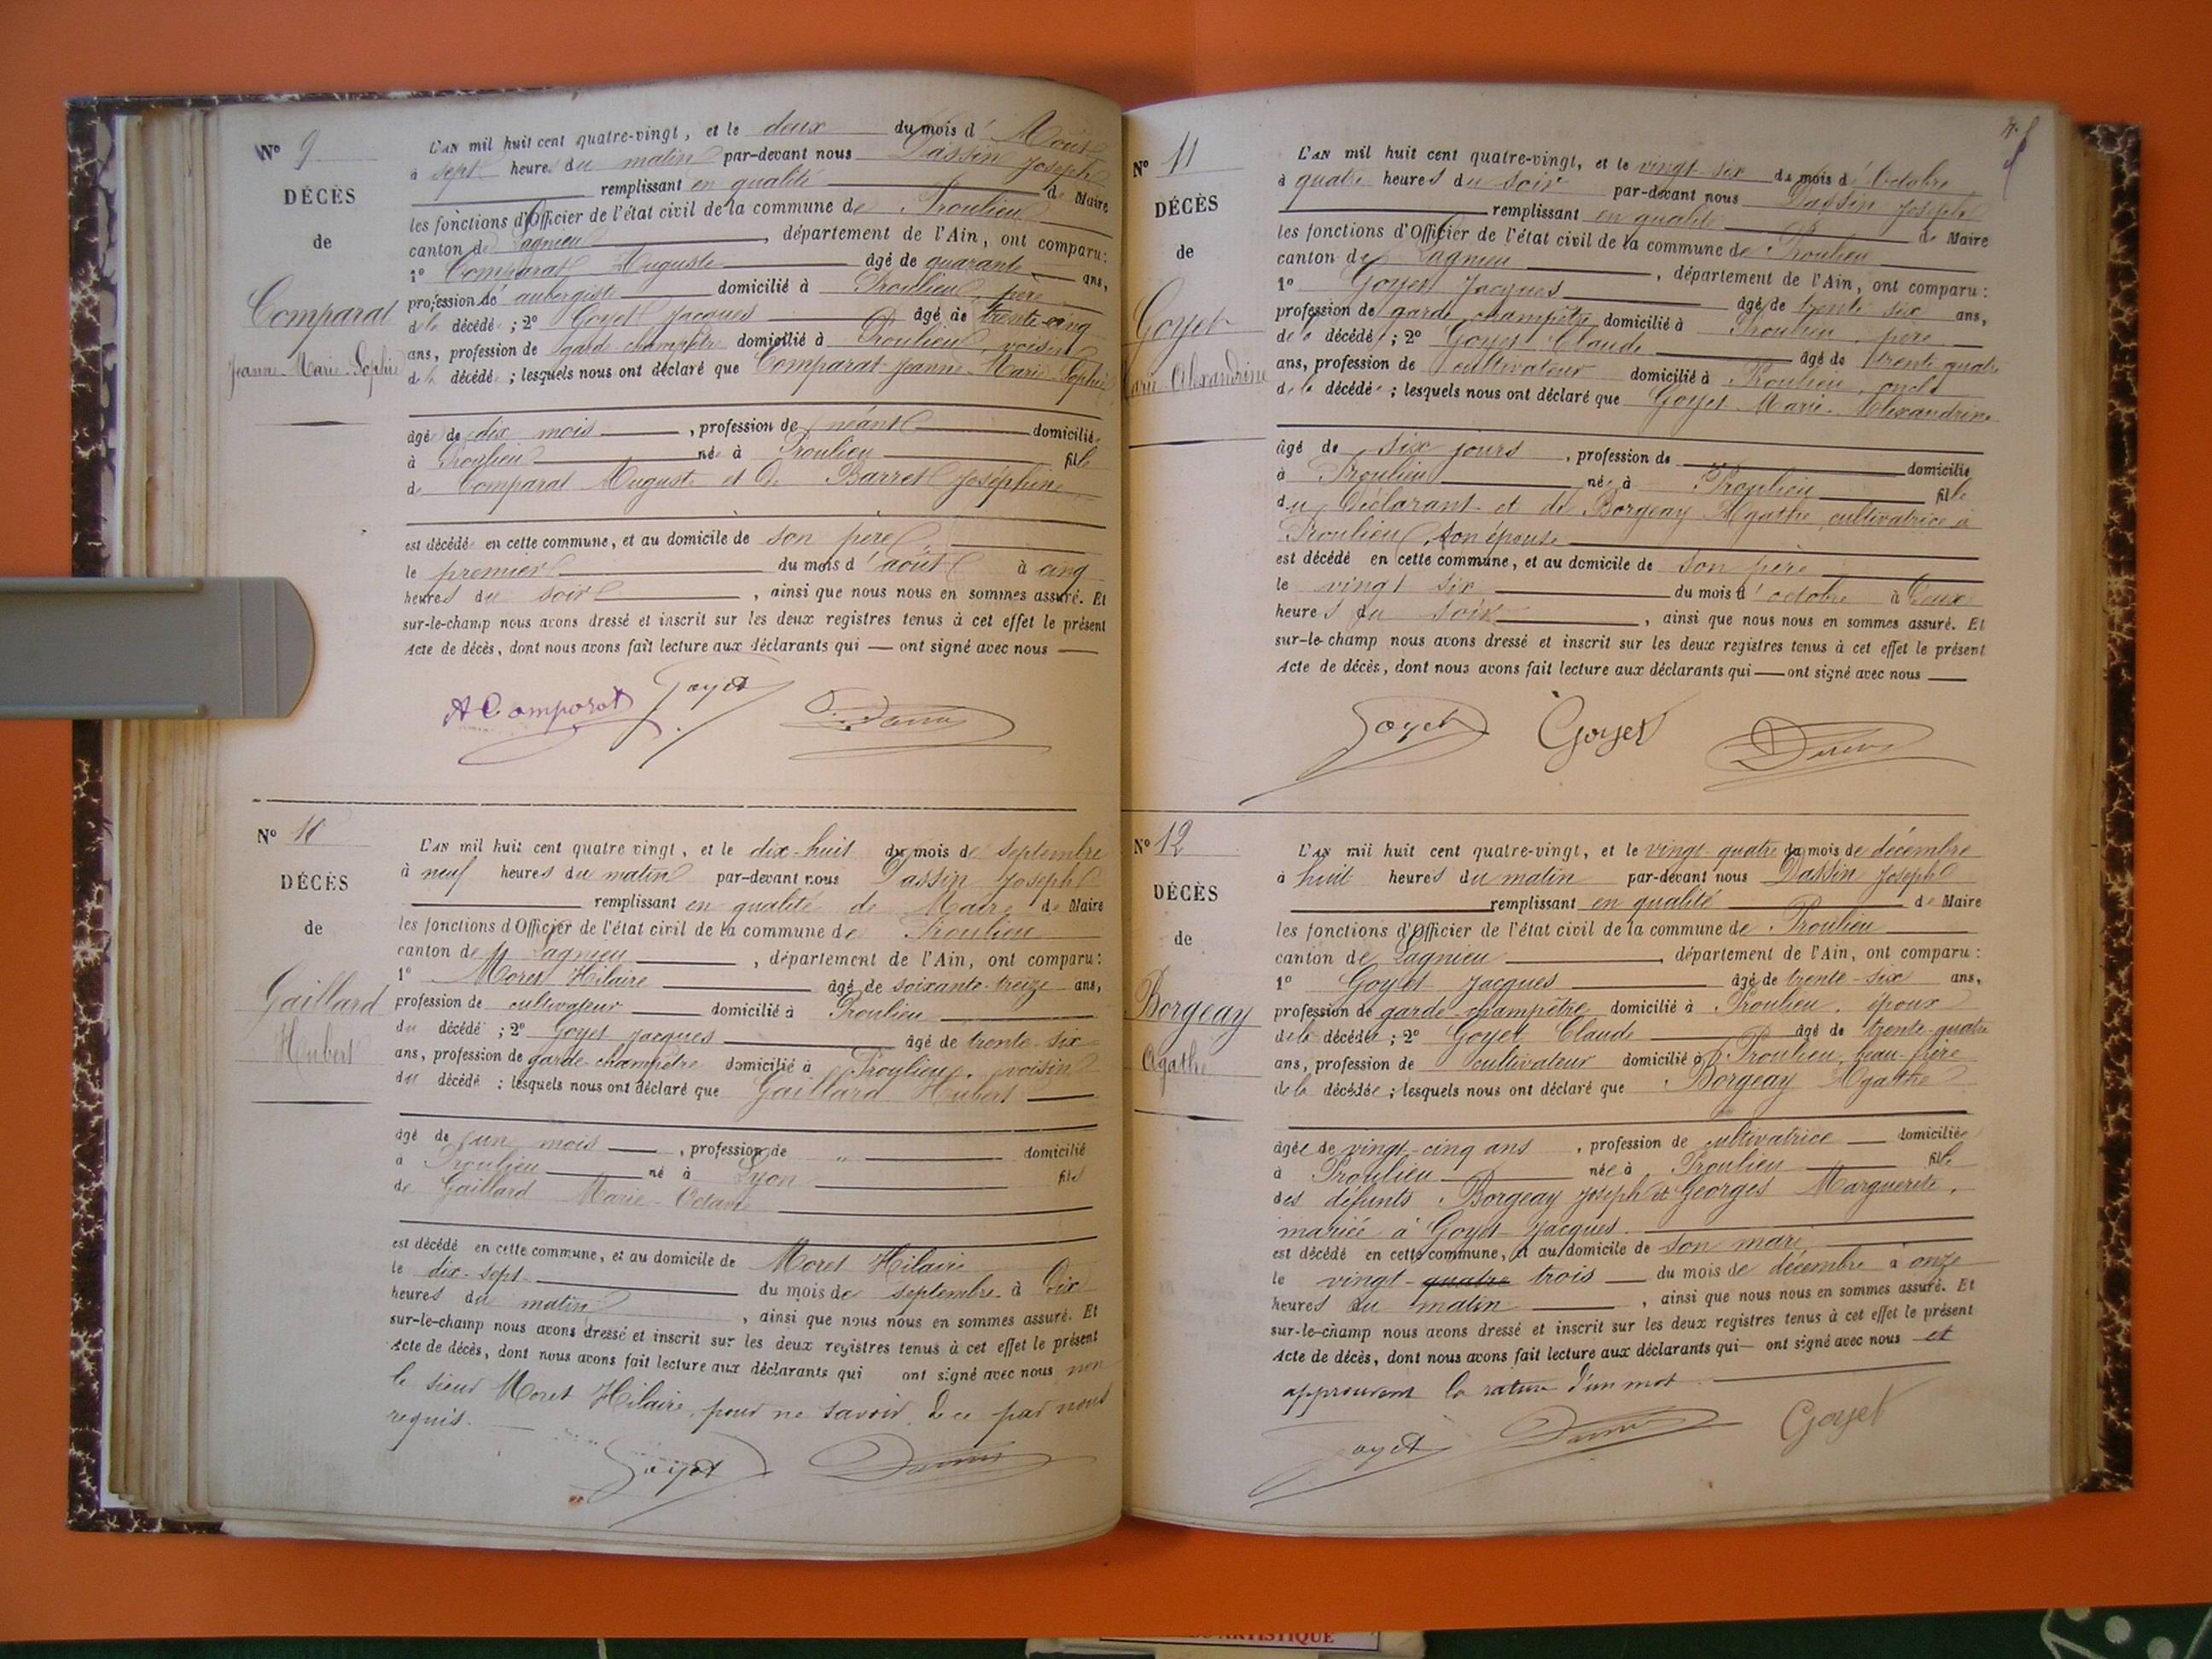 Nº 9
DÉCÈS
de
Comparat
Jeanne-Marie-Sophie
L'AN mil huit cent quatre-vingt, et le deux du mois d' Août
à sept heures du matin par-devant nous Dassin Joseph
remplissant en qualité de Maire
les fonctions d'Officier de l'état civil de la commune de Proulieu
canton de Lagnieu, département de l'Ain, ont comparu:
1º Comparat Auguste âgé de quarante ans,
profession de aubergiste domicilié à Proulieu, père
de la décédée; 2º Goyet Jacques âgé de trente-cinq
ans, profession de garde champêtre domicilié à Proulieu, voisin
de la décédée; lesquels nous ont déclaré que Comparat Jeanne-Marie-Sophie
âgée de dix mois, profession de néant domiciliée
à Proulieu née à Proulieu fille
de Comparat Auguste et de Barret Joséphine
est décédée en cette commune, et au domicile de son père
le premier du mois d'août à cinq
heures du soir, ainsi que nous nous en sommes assuré. Et
sur-le-champ nous avons dressé et inscrit sur les deux registres tenus à cet effet le présent
Acte de décès, dont nous avons fait lecture aux déclarants qui — ont signé avec nous —
A Comparat Goyet Dassin
Nº 10
DÉCÈS
de
Gaillard
Hubert
L'AN mil huit cent quatre vingt, et le dix-huit du mois de septembre
à neuf heures du matin par-devant nous Dassin Joseph
remplissant en qualité de Maire de Maire
les fonctions d'Officier de l'état civil de la commune de Proulieu
canton de Lagnieu, département de l'Ain, ont comparu:
1º Moret Hilaire âgé de soixante-treize ans,
profession de cultivateur domicilié à Proulieu
du décédé; 2º Goyet Jacques âgé de trente-six
ans, profession de garde-champêtre domicilié à Proulieu, voisin
du décédé: lesquels nous ont déclaré que Gaillard Hubert
âgé de un mois, profession de " domicilié
à Proulieu né à Lyon fils
de Gaillard Marie-Octavie
est décédé en cette commune, et au domicile de Moret Hilaire
le dix-sept du mois de septembre à dix
heures du matin, ainsi que nous nous en sommes assuré. Et
sur-le-champ nous avons dressé et inscrit sur les deux registres tenus à cet effet le présent
Acte de décès, dont nous avons fait lecture aux déclarants qui ont signé avec nous non
le sieur Moret Hilaire, pour ne savoir, de ce par nous
requis.
Goyet Dassin
Nº 11
DÉCÈS
de
Goyet
Marie-Alexandrine
L'AN mil huit cent quatre-vingt, et le vingt-six du mois d'Octobre
à quatre heures du soir par-devant nous Dassin Joseph
remplissant en qualité de Maire
les fonctions d'Officier de l'état civil de la commune de Proulieu
canton de Lagnieu, département de l'Ain, ont comparu:
1º Goyet Jacques âgé de trente six ans,
profession de garde champêtre domicilié à Proulieu, père
de la décédée; 2º Goyet Claude âgé de trente quatre
ans, profession de cultivateur domicilié à Proulieu, oncle
de la décédée; lesquels nous ont déclaré que Goyet Marie-Alexandrine
âgé de six jours, profession de domicilié
à Proulieu née à Proulieu fille
du Déclarant et de Borgeay Agathe, cultivatrice à
Proulieu, son épouse
est décédé en cette commune, et au domicile de son père
le vingt six du mois d'octobre à deux
heures du soir, ainsi que nous nous en sommes assuré. Et
sur-le-champ nous avons dressé et inscrit sur les deux registres tenus à cet effet le présent
Acte de décès, dont nous avons fait lecture aux déclarants qui — ont signé avec nous —
Goyet Goyet Dassin
Nº 12
DÉCÈS
de
Borgeay
Agathe
L'AN mil huit cent quatre-vingt, et le vingt-quatre du mois de décembre
à huit heures du matin par-devant nous Dassin Joseph
remplissant en qualité de Maire
les fonctions d'Officier de l'état civil de la commune de Proulieu
canton de Lagnieu, département de l'Ain, ont comparu:
1º Goyet Jacques âgé de trente-six ans,
profession de garde-champêtre domicilié à Proulieu, époux
de la décédée; 2º Goyet Claude âgé de trente-quatre
ans, profession de cultivateur domicilié à Proulieu, beau-frère
de la décédée; lesquels nous ont déclaré que Borgeay Agathe
âgée de vingt-cinq ans, profession de cultivatrice domiciliée
à Proulieu née à Proulieu fille
des défunts Borgeay Joseph et Georges Marguerite,
mariée à Goyet Jacques.
est décédé en cette commune, et au domicile de son mari
le vingt-quatre trois du mois de décembre à onze
heures du matin, ainsi que nous nous en sommes assuré. Et
sur-le-champ nous avons dressé et inscrit sur les deux registres tenus à cet effet le présent
Acte de décès, dont nous avons fait lecture aux déclarants qui — ont signé avec nous et
approuvent la rature d'un mot.
Goyet Dassin Goyet
ARTISTIQUE